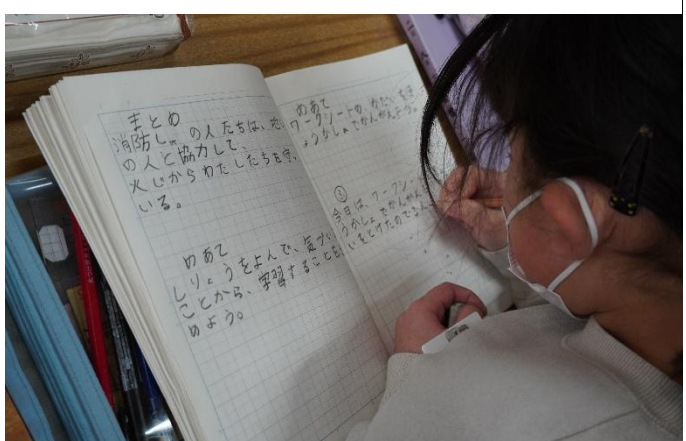 まとめ
消防しょの人たちは、地
の人と協力して、
火じからわたしたちを守
いる。
めあて
しりょうをよんで、気づい
ことから、学習することを
めよう。
めあて
ワークシートの、かだいを
ょうかしょでかんがえよう。
③
今日は、ワークシー
うかしょでかんがん
いをとけたので